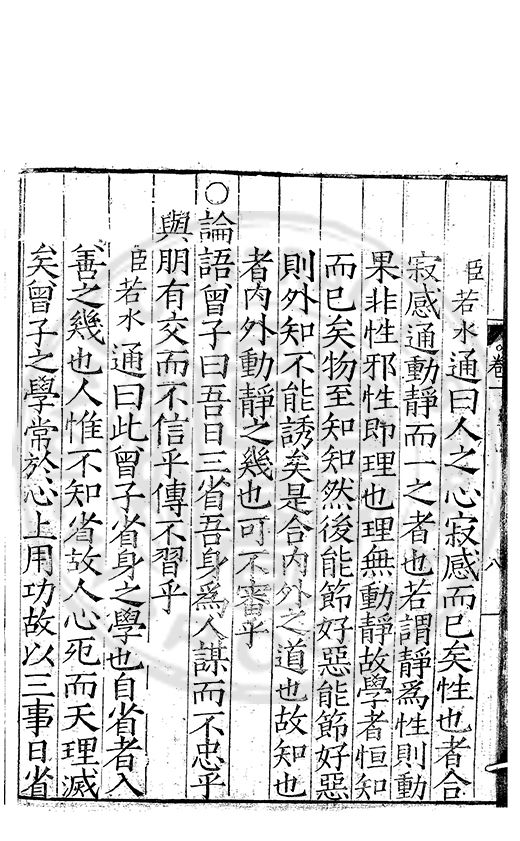 臣若水通曰人之心寂感而已矣性也者合
寂感通動靜而一之者也若謂靜爲性則動
果非性邪性即理也理無動靜故學者恒知
而已矣物至知知然後能節好惡能節好惡
則外知不能誘矣是合內外之道也故知也
者內外動靜之幾也可不審乎
○論語曾子曰吾日三省吾身爲人謀而不忠乎
與朋友交而不信乎傳不習乎
臣若水通曰此曾子省身之學也自省者入
善之幾也人惟不知省故人心死而天理滅
矣曾子之學常於心上用功故以三事日省
卷一
八